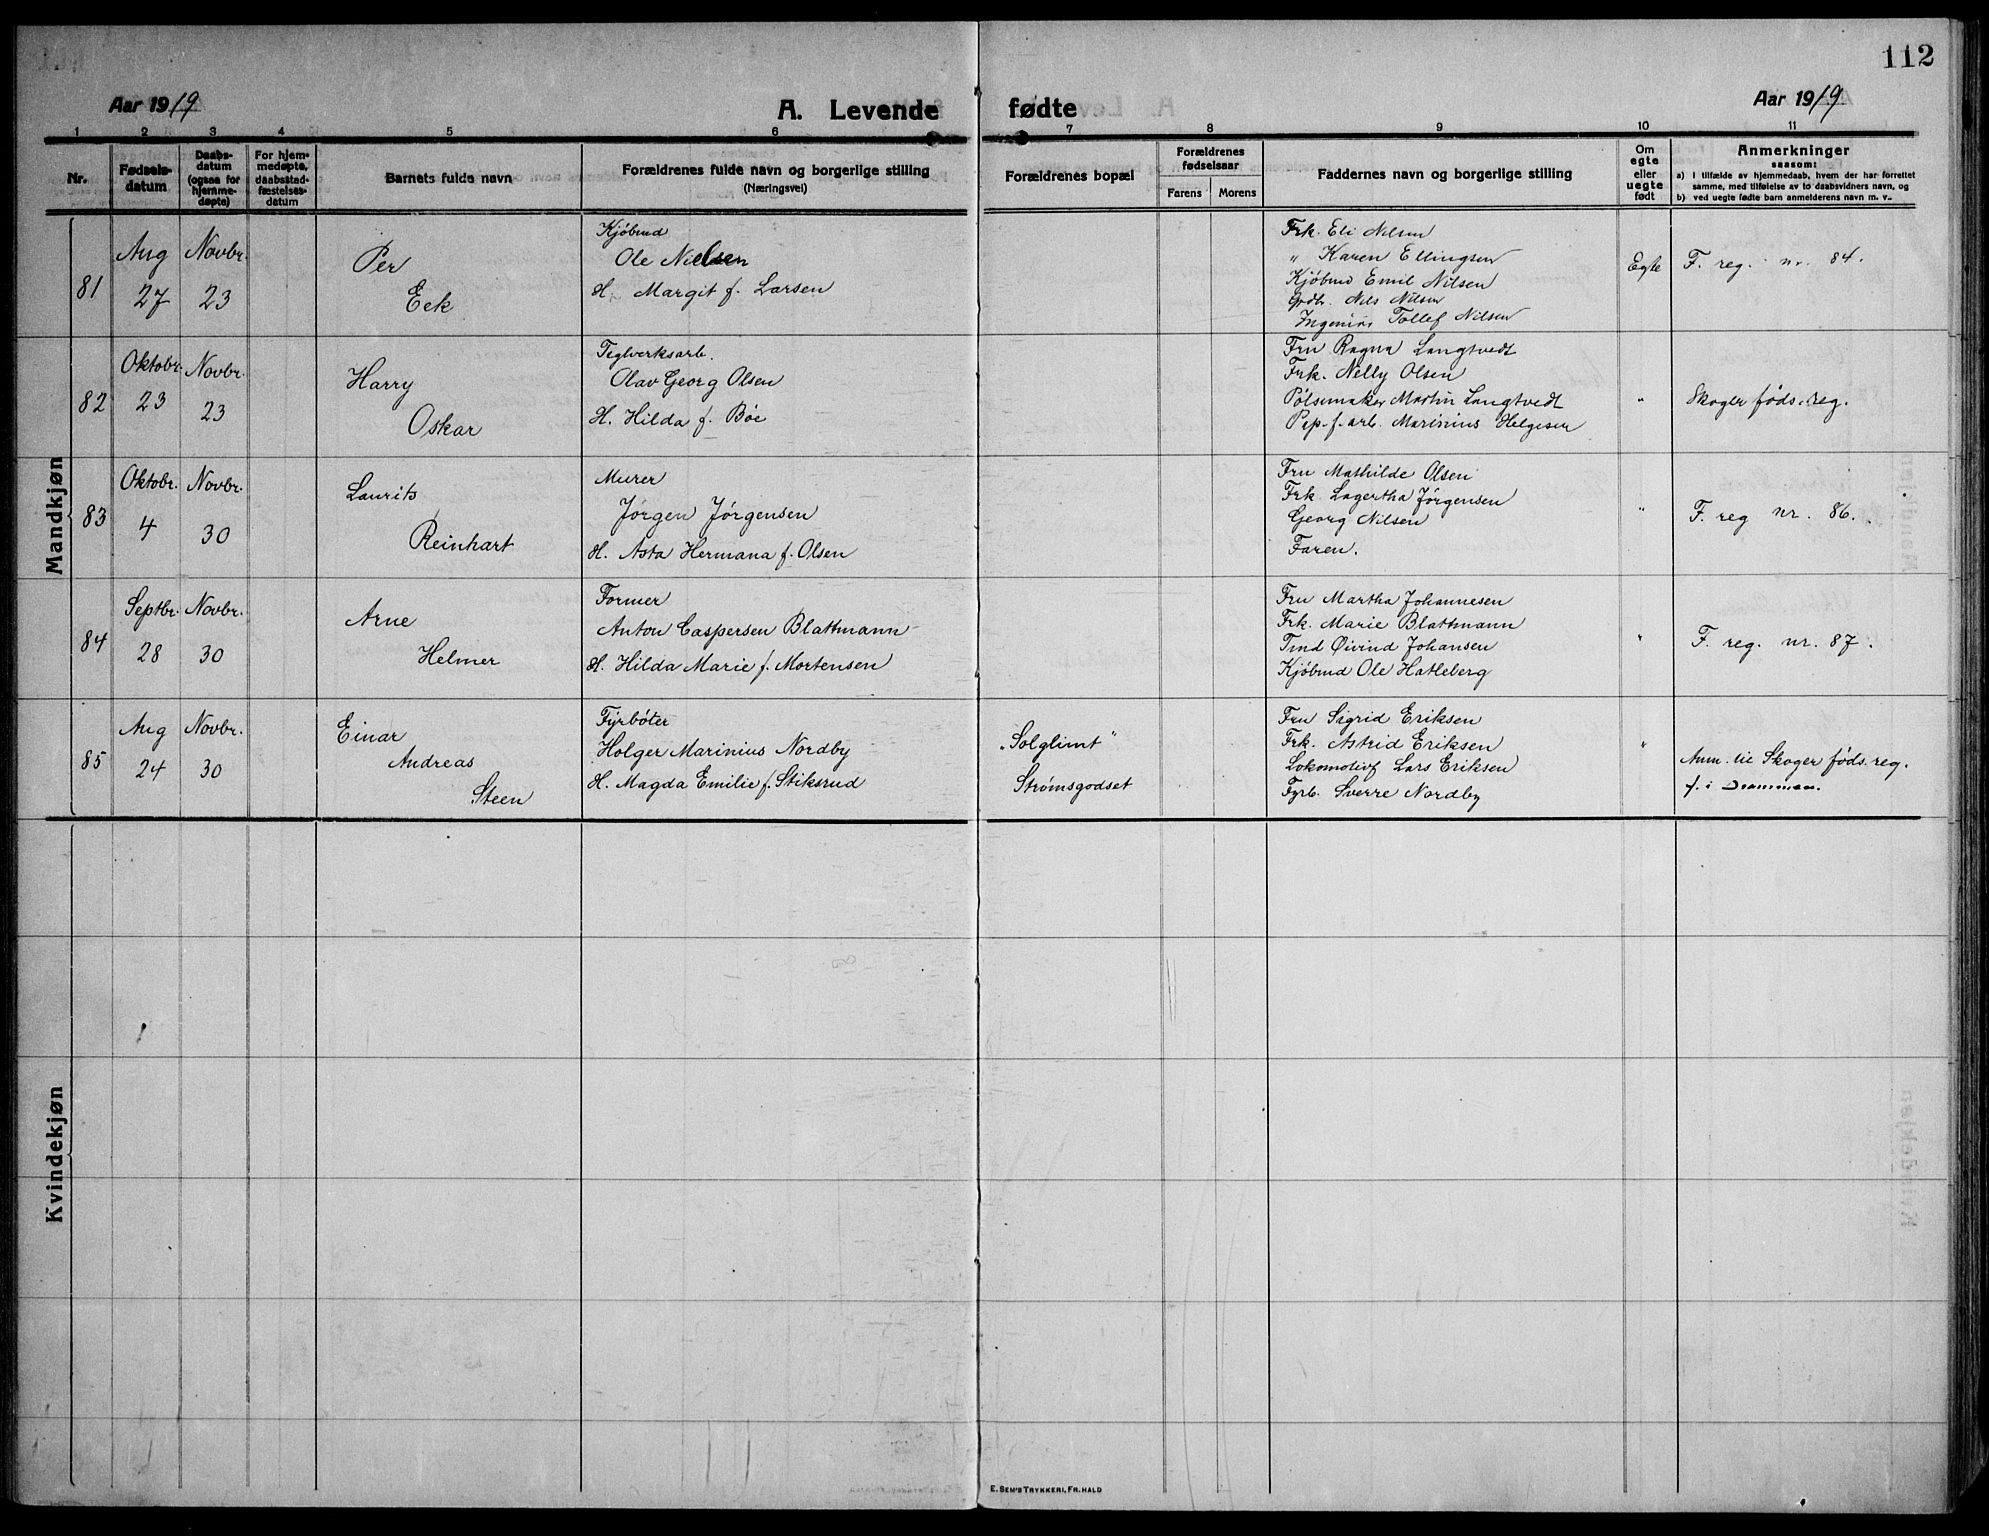 112
Aar 1919
A. Levende fødte
Aar 1919
1 2 3 4 5 6 7 8 9 10 11
Nr.
Fødsels-
datum
Daabs-
datum
(ogsaa for
hjemme-
døpte)
For hjem-
medøpte,
daabsstad-
fæstelses-
datum
Barnets fulde navn
Forældrenes fulde navn og borgerlige stilling
(Næringsvei)
Forældrenes bopæl
Forældrenes
fødselsaar
Farens Morens
Faddernes navn og borgerlige stilling
Om
egte
eller
uegte
født
Anmerkninger
saasom:
a) I tilfælde av hjemmedaab, hvem der har forrettet
samme, med tilføielse av to daabsvidners navn, og
b) ved uegte fødte barn anmelderens navn m. v..
Mandkjøn
81
Aug
27
Novbr.
23
Per
Eek
Kjøbmd
Ole Nielsen
H. Margit f. Larsen
Frk. Eli Nilsen
" Karen Ellingsen
Kjøbmd Emil Nilsen
Grdbr. Nils Nilsen
Ingeniør Tollef Nilsen
Egte
F. reg. nr. 84.
82
Oktobr.
23
Novbr.
23
Harry
Oskar
Teglverksarb.
Olav Georg Olsen
H. Hilda f. Bøe
Fru Ragna Langtvedt
Frk. Nelly Olsen
Pølsemaker Martin Langtvedt
Pap. f. arb. Marinius Helgesen
"
Skoger føds. reg.
83
Oktobr.
4
Novbr.
30
Laurits
Reinhart
Murer
Jørgen Jørgensen
H. Asta Hermana f. Olsen
Fru Mathilde Olsen
Frk. Lagertha Jørgensen
Georg Nilsen
Faren.
"
F. reg nr. 86.
84
Septbr.
28
Novbr.
30
Arne
Helmer
Former
Anton Caspersen Blattmann
H. Hilda Marie f. Mortensen
Fru Martha Johannesen
Frk. Marie Blattmann
Tmd Øivind Johansen
Kjøbmd Ole Hatleberg
"
F. reg. nr. 87.
85
Aug
24
Novbr.
30
Einar
Andreas
Steen
Fyrbøter
Holger Marinius Nordby
H. Magda Emilie f. Stiksrud
"Solglimt"
Strømsgodset
Fru Sigrid Eriksen
Frk. Astrid Eriksen
Lokomotivf Lars Eriksen
Fyrb. Sverre Nordby
"
Anm. til Skoger føds. reg.
f. i Drammen.
Kvindekjøn
E. SEM'S TRYKKERI, FR. HALD